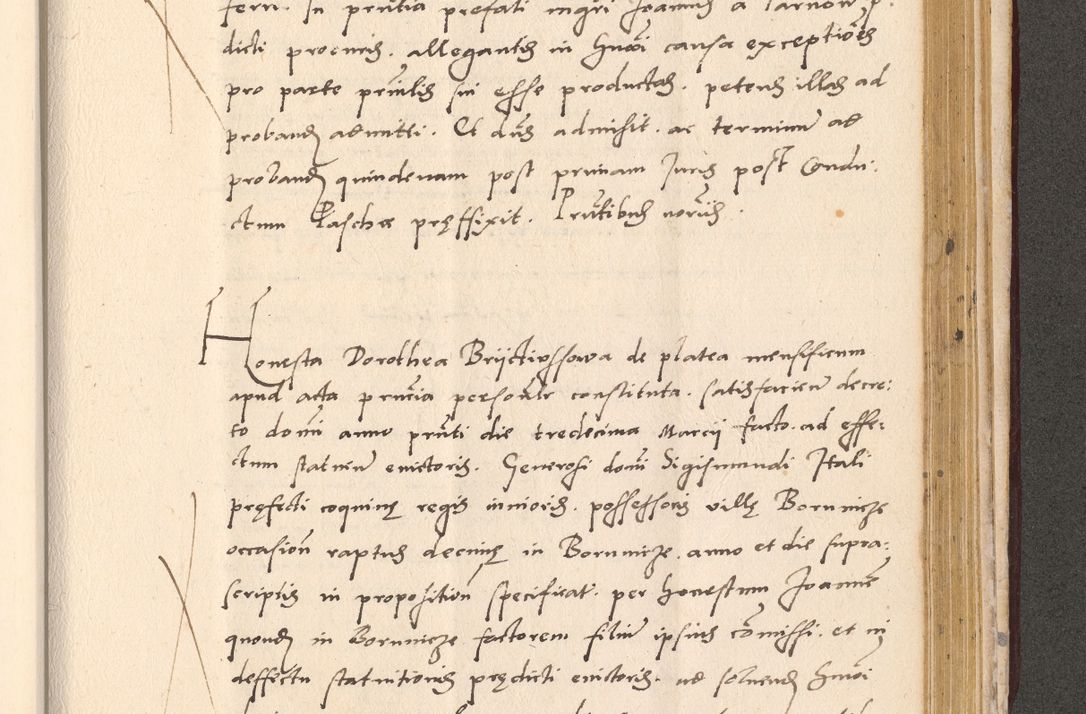 fern. In prutia prefati mgri Joannis a Tarnow p.
dicti procuris. allegantis in huiõi causa exceptiões
pro parte priñlis sui esse productas. petens illas ad
proband admitti. Et dñs admisit. ac terminũ ad
proband quindenam post primam Juris post Condu:
ctum Paschæ pręffixit. Prñtibus norijs.
Honesta Dorothea Brijctipssowa de platea mensificum
apud acta pruñia persoñlr constituta. satisfacienũ decre:
to domi anno prñti die tredecima Marcij facto. ad effe:
ctum statuenũ euictoris. Generosi domi Sigismundi Itali
pręfecti coquinę regis iunioris. possessoris villę Borunicze
occasioñ raptus decimę in Borunicze. anno et die supra:
scriptis in propositioñ specificat. per honestum Joannẽ
quond in Borunicze factorem filiũ ipsius cõmissi. et in
deffectu statuitionis prędicti euictoris. ad soluend huiõi